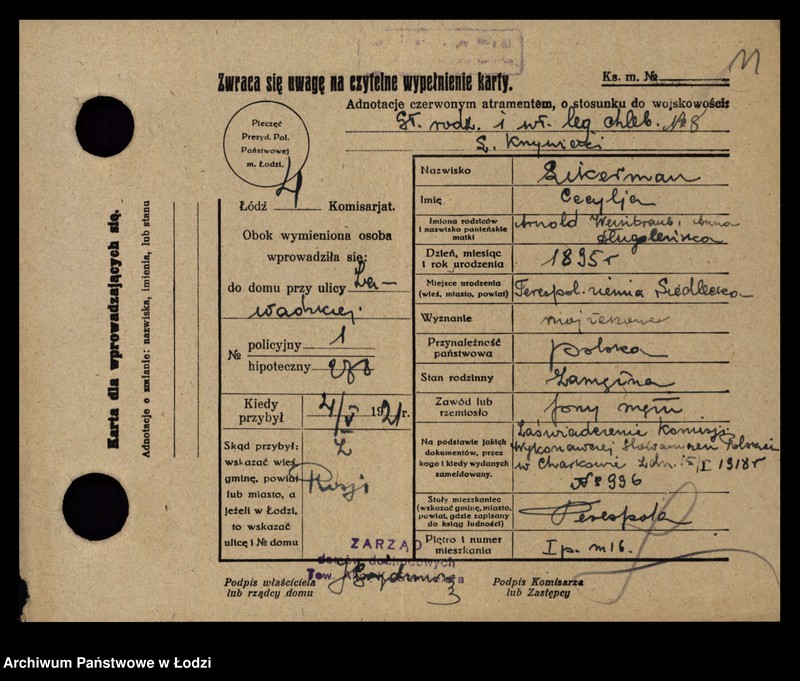 11
Zwraca się uwagę na czytelne wypełnienie karty.
Ks. m. №
Adnotacje czerwonym atramentem, o stosunku do wojskowości:
Karta dla wprowadzających się.
Adnotacje o zmianie: nazwiska, imienia, lub stanu
Pieczęć
Prezyd. Pol.
Państwowej
m. Łodzi.
Łódź 4 Komisarjat.
Obok wymieniona osoba
wprowadziła się:
do domu przy ulicy Za-
wadzkiej
№ policyjny 1
hipoteczny
Kiedy przybył 4/V 1921 r.
Skąd przybył:
wskazać wieś
gminę, powiat
lub miasto, a
jeżeli w Łodzi,
to wskazać
ulicę i № domu
Z
Rosji
Nazwisko Cukerman
Imię Cecylja
Imiona rodziców
i nazwisko panieńskie
matki
Arnold Weintraub, Anna
Dzień, miesiąc
i rok urodzenia
1895 r
Miejsce urodzenia
(wieś, miasto, powiat)
Terespol ziemia Siedlecka
Wyznanie mojżeszowe
Przynależność
państwowa
polska
Stan rodzinny Zamężna
Zawód lub
rzemiosło
przy mężu
Na podstawie jakich
dokumentów, przez
kogo i kiedy wydanych
zameldowany.
Zaświadczenie Komisji
Wykonawczej Polskich
w Charkowie z dn. 15/I 1918 r
№ 996
Stały mieszkaniec
(wskazać gminę, miasto,
powiat, gdzie zapisany
do ksiąg ludności)
Terespola
Piętro i numer
mieszkania
I p. m 16.
ZARZĄD
domów dochodowych
Podpis właściciela
lub rządcy domu
Podpis Komisarza
lub Zastępcy
Archiwum Państwowe w Łodzi